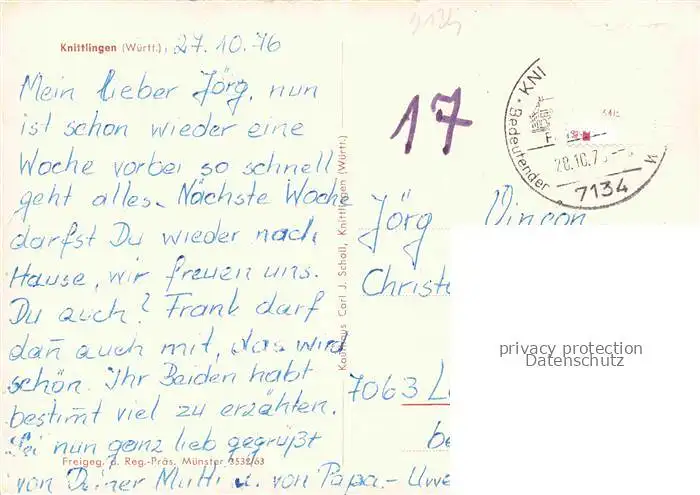 Knittlingen (Württ.), 27.10.76
Mein lieber Jörg, nun
ist schon wieder eine
Woche vorbei so schnell
geht alles. Nächste Woche
darfst Du wieder nach
Hause, wir freuen uns.
Du auch? Frank darf
dan̄ auch mit, das wird
schön. Ihr Beiden habt
bestim̄t viel zu erzählen.
Sei nun ganz lieb gegrüßt
von Deiner Mutti u. von Papa.- Uwe
Freigeg. d. Reg.-Präs. Münster 3532/63
Kaufhaus Carl J. Scholl, Knittlingen (Württ.)
17
KNI
Bedeutender
28.10.7
7134
Jörg
Christ
7063
be
privacy protection
Datenschutz